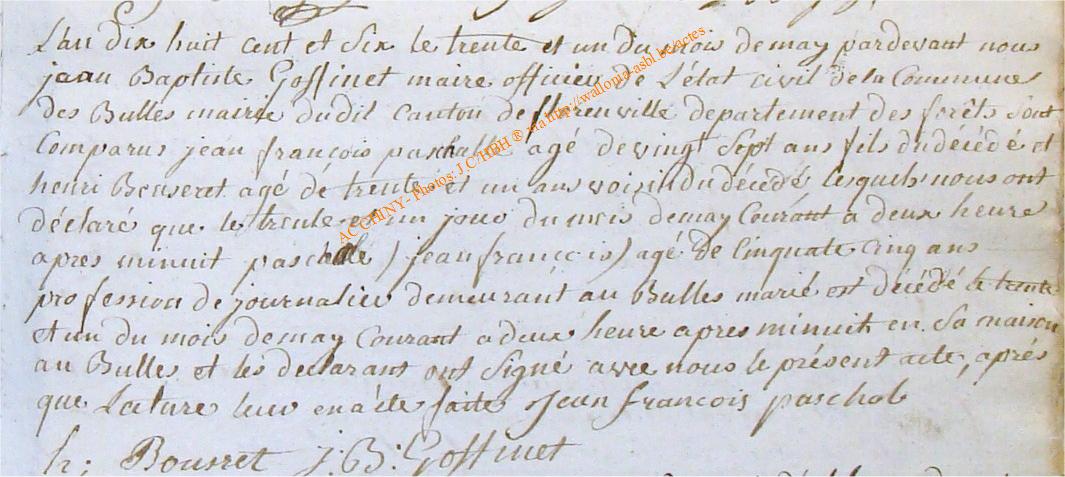 L'an dix huit cent et Six le trente et un du mois de may pardevant nous
jean Baptiste Goffinet maire officier de L'état civil de la Commune
des Bulles mairie dudit Canton de florenville departement des forêts Sont
Comparus jean françois paschale agé de vingt Sept ans fils du décédé et
henri Bouseret agé de trente et un ans voisin du décédé lesquels nous ont
déclaré que le trente et un jour du mois de may Courant a deux heure
apres minuit paschale (jean françois) agé de Cinquate Cinq ans
profession de journalier demeurant au Bulles marié est décédé le trente
et un du mois de may Courant a deux heure apres minuit en Sa maison
au Bulles et les declarant ont Signé avec nous le présent acte, aprés
que Lature leur en a éte faite Jean françois paschal
h: Bousret J: B: Goffinet
ACCHINY- Photos: J.C. HBH ® via http://wallonia-asbl.be/actes